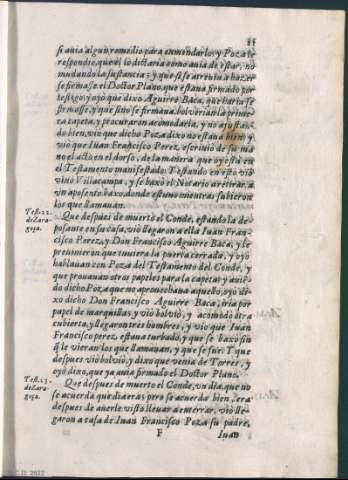 se auia algun remedio para enmendarlo, y Poza le
respondio, que el lo dictaria como auia de estar, no
mudando la sustancia: y que si se atreuia a hazer
se firmasse el Doctor Plano, que estaua firmado por
testigo, y oyò que dixo Aguirre Baca, que haria se
firmasse, y que sino se firmaua, boluerian la primera
y no ajustan-
do bien, vio que dicho Poza dixo no estaua bien, y
vio que Iuan Francisco Perez, escriuio de su ma
no el acto en el dorso, de la manera que oy està en
el Testamento manifestado: Y estando en esto, vio
vino Villacampa, y se baxò el Notario a retirar, a
vn aposento baxo, donde estuuo mientras subieron
los que llamauan.
Test. 22.
de Zara-
goça.
Que despues de muerto el Conde, estando la de-
posante en su casa, viò llegaron a ella Iuan Fran-
cisco Perez, y Don Francisco Aguirre Baca, y le
preuinieron que tuuiera la puerta cerrada, y oyò
hablauan con Poza del Testamento del Conde, y
que prouauan otros papeles para la capeta: y auien
do dicho Poza que no aprouechaua aquello, oyò di-
xo dicho Don Francisco Aguirre Baca, iria por
papel de marquillas, y viò bolviò, y acomodò otra
cubierta, y llegaron tres hombres, y vio que Iuan
Francisco perez, estaua turbado, y que se baxò sin
q̃ le vieran los que llamauan, y que se fue. Y que
despues viò boluiò, y dixo que venia de Torres, y
oyò dixo, que ya auia firmado el Doctor Plano.
Test. 23.
de Zara-
goça.
Que despues de muerto el Conde, vn dia, que no
se acuerda que dia era; pero se acuerda bien, era
despues de auerle visto lleuar a enterrar, viò lle-
garon a casa de Iuan Francisco Poza su padre,
F Iuan